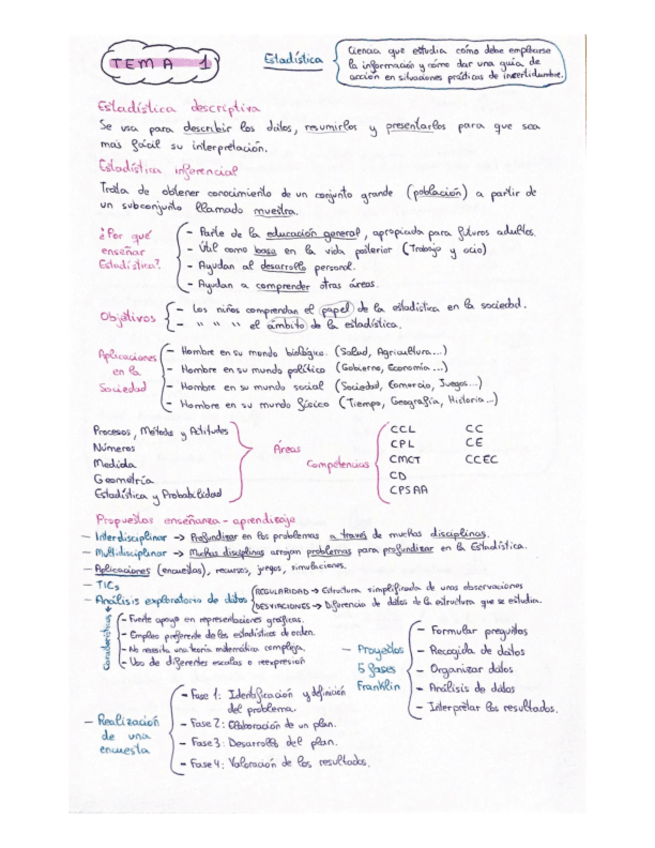 TEMA 1
Estadística
Ciencia que estudia cómo debe emplearse
la información y cómo dar una guía de
acción en situaciones prácticas de incertidumbre.
Estadística descriptiva
Se usa para describir los datos, resumirlos y presentarlos para que sea
mas fácil su interpretación.
Estadística inferencial
Trata de obtener conocimiento de un conjunto grande (población) a partir de
un subconjunto llamado muestra.
¿Por qué
enseñar
Estadística?
- Parte de la educación general, apropiada para futuros adultos.
- Útil como base en la vida posterior (Trabajo y ocio)
- Ayudan al desarrollo personal.
- Ayudan a comprender otras áreas.
Objetivos
- Los niños comprendan el papel de la estadística en la sociedad.
- " " " " el ámbito de la estadística.
Aplicaciones
en la
Sociedad
- Hombre en su mundo biológico. (Salud, Agricultura...)
- Hombre en su mundo político (Gobierno, Economía...)
- Hombre en su mundo social (Sociedad, Comercio, Juegos...)
- Hombre en su mundo físico (Tiempo, Geografía, Historia...)
Procesos, Métodos y Actitudes
Números
Medida
Geometría
Estadística y Probabilidad
Áreas
Competencias
CCL
CPL
CMCT
CD
CPSAA
CC
CE
CCEC
Propuestas enseñanza-aprendizaje
- Interdisciplinar → Profundizar en los problemas a través de muchas disciplinas.
- Multidisciplinar → Muchas disciplinas arrojan problemas para profundizar en la Estadística.
- Aplicaciones (encuestas), recursos, juegos, simulaciones.
- TICs
- Análisis exploratorio de datos
REGULARIDAD → Estructura simplificada de unas observaciones
DESVIACIONES → Diferencia de datos de la estructura que se estudia.
Características
- Fuerte apoyo en representaciones gráficas.
- Empleo preferente de los estadísticos de orden.
- No necesita una teoría matemática compleja.
- Uso de diferentes escalas o reexpresión
- Proyectos
5 fases
Franklin
- Formular preguntas
- Recogida de datos
- Organizar datos
- Análisis de datos
- Interpretar los resultados.
- Realización
de una
encuesta
- Fase 1: Identificación y definición
del problema.
- Fase 2: Elaboración de un plan.
- Fase 3: Desarrollo del plan.
- Fase 4: Valoración de los resultados.